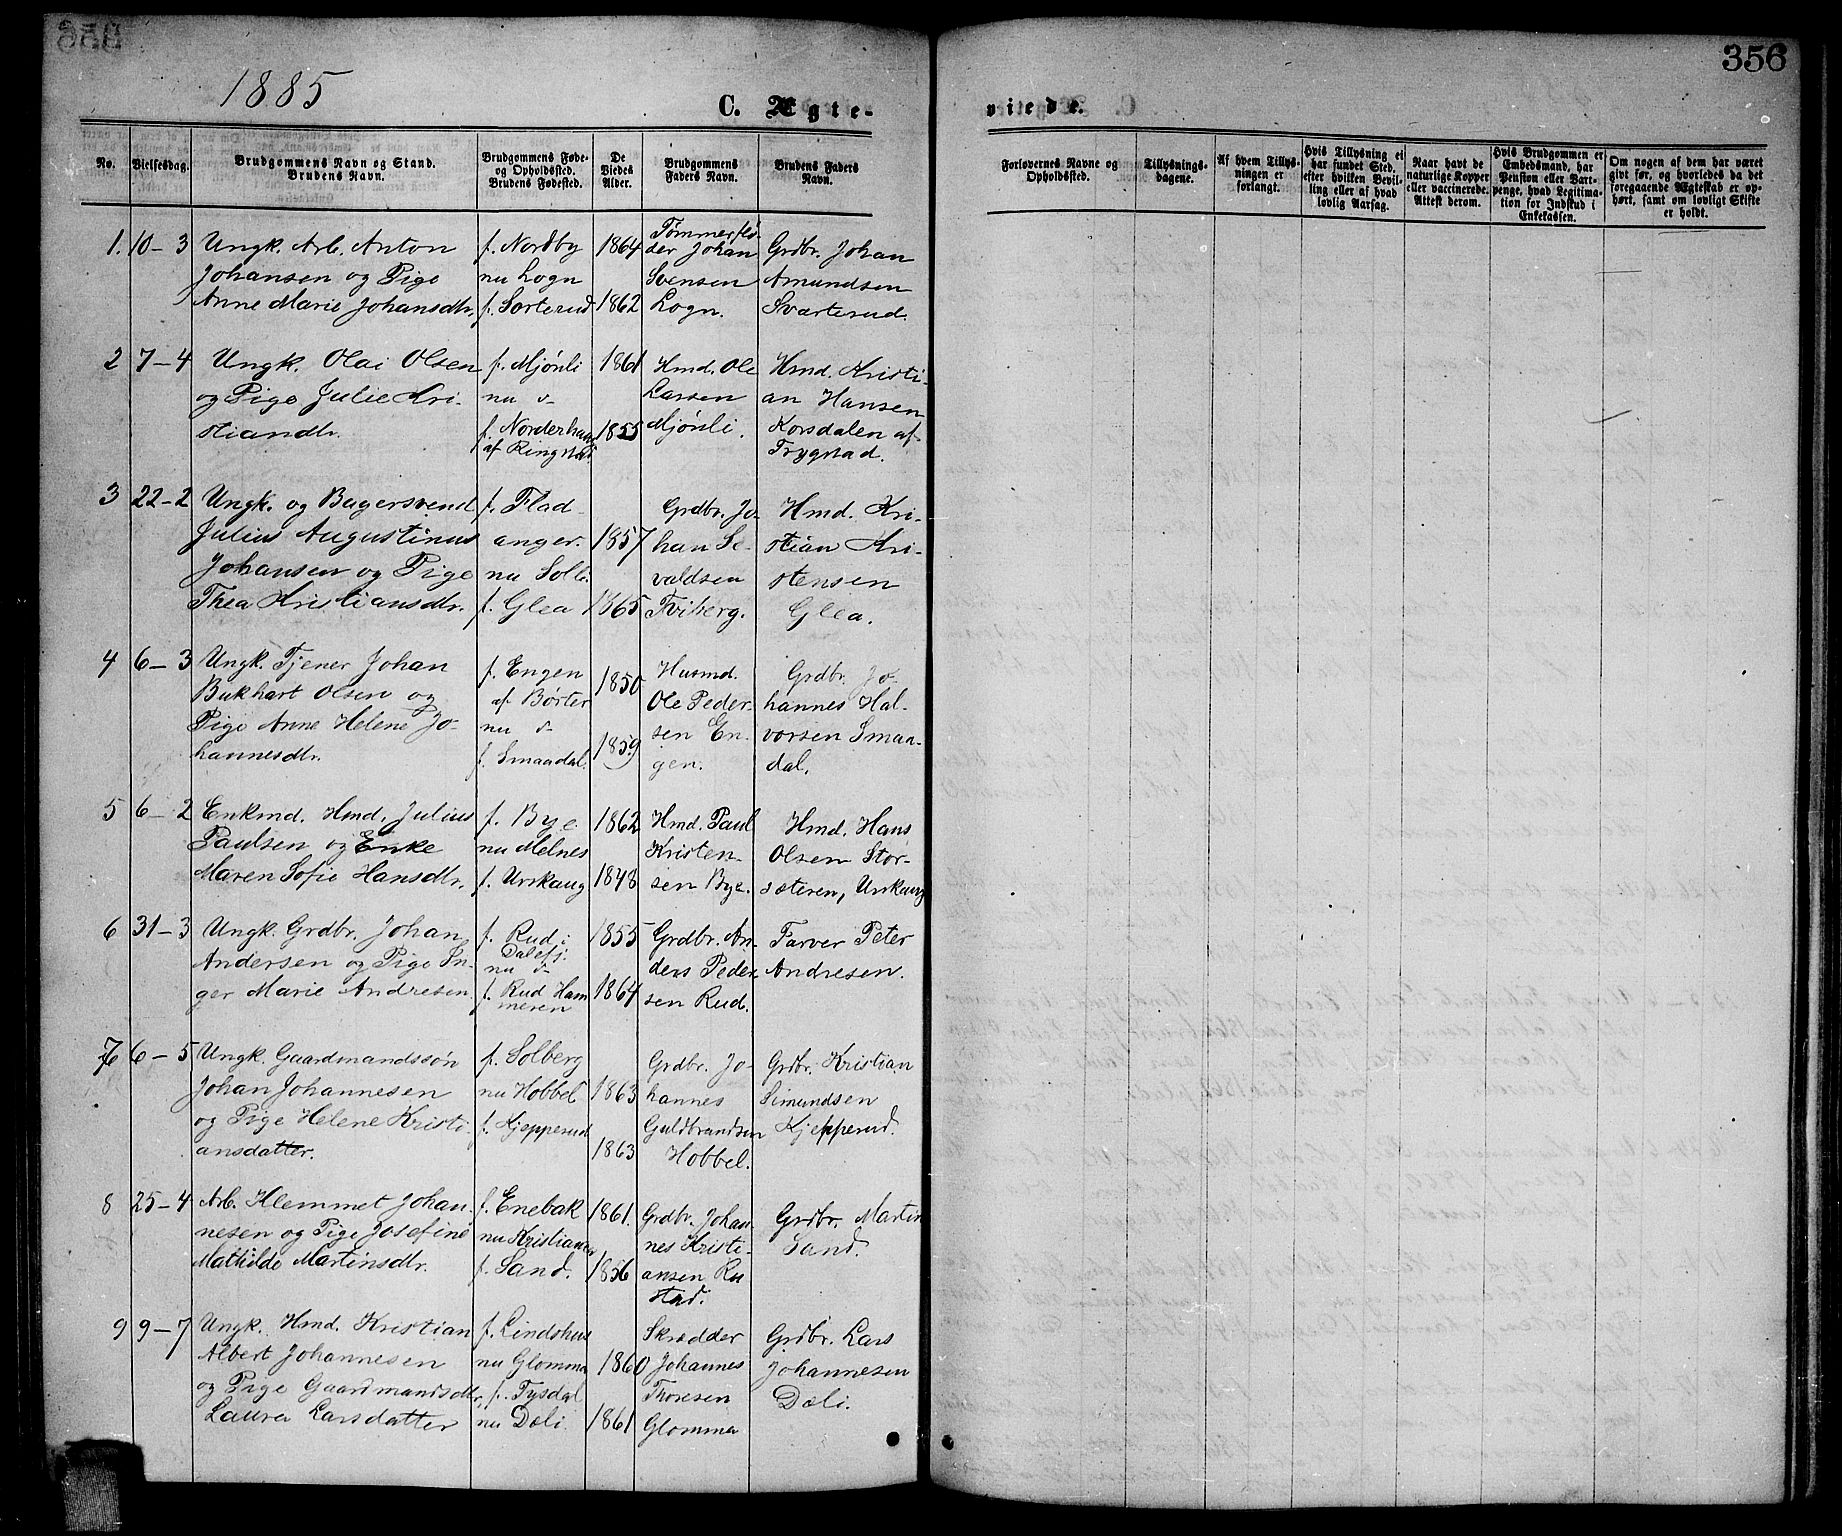 356
1885
C. Ægte-
viede.
No.
Vielsesdag.
Brudgommens Navn og Stand.
Brudens Navn.
Brudgommens Føde-
og Opholdssted.
Brudens Fødested.
De
Viedes
Alder.
Brudgommens
Faders Navn.
Brudens Faders
Navn.
Forlovernes Navne og
Opholdssted.
Tillysnings-
dagene.
Af hvem Tillys-
ningen er
forlangt.
Hvis Tillysning ei
har fundet Sted,
efter hvilken Bevil-
ling eller af hvad
lovlig Aarsag.
Naar havt de
naturlige Kopper
eller vaccinerede.
Attest derom.
Hvis Brudgommen er
Embedsmand, har
Pension eller Vart-
penge, hvad Legitima-
tion for Indskud i
Enkekassen.
Om nogen af dem har været
givt før, og hvorledes da det
foregaaende Ægteskab er op-
hørt, samt om lovligt Skifte
er holdt.
1. 10-3
Ungk. Arb. Anton
Johansen og Pige
Anne Marie Johansdtr.
f. Nordby
nu Logn
f. Sorterud
1864
1862
Tømmerflø
der Johan
Svensen
Logn.
Grdbr. Johan
Amundsen
Svarterud.
2 7-4
Ungk. Olai Olsen
og Pige Julie Kri-
stiandtr.
f. Mjønli
nu d-
f. Norderhaug
af Ringstad.
1861
1855
Hmd. Ole
Larsen
Mjønli.
Hmd. Kristi-
an Hansen
Korsdalen af
Trygstad.
3 22-2
Ungk. og Bagersvend
Julius Augustinus
Johansen og Pige
Thea Kristiansdtr.
f. Flad-
anger.
nu Solli
f. Glea
1857
1865
Grdbr. Jo-
han Se-
valdsen
Tviberg.
Hmd. Kri-
stian Kri-
stensen
Glea.
4 6-3
Ungk. Tjener Johan
Bukhart Olsen og
Pige Anne Helene Jo-
hannesdtr.
f. Engen
af Børter
nu d-
f. Smaadal.
1850
1859
Husmd.
Ole Peder-
sen En-
gen.
Grdbr. Jo-
hannes Hal-
vorsen Smaa-
dal.
5 6-2
Enkmd. Hmd. Julius
Paulsen og Enke
Maren Sofie Hansdtr.
f. Bye
nu Melnes
f. Urskaug
1862
1848
Hmd. Paul
Kristen-
sen Bye.
Hmd. Hans
Olsen Stor-
sæteren, Urskaug
6 31-3
Ungk. Grdbr. Johan
Andersen og Pige In-
ger Marie Andresen.
f. Rud i
Dalefj.
nu d-
f. Rud Ham
meren
1855
1864
Grdbr. An-
ders Peder
sen Rud.
Farver Peter
Andresen.
7 6-5
Ungk. Gaardmandssøn
Johan Johannesen
og Pige Helene Kristi
ansdatter.
f. Solberg
nu Hobbel
f. Kjepperud
1863
1863
Grdbr. Jo-
hannes
Guldbrandsen
Hobbel.
Grdbr. Kristian
Simundsen
Kjepperud.
8 25-4
Arb. Klemmet Johan
nesen og Pige Josefine
Mathilde Martinsdtr.
f. Enebak
nu Kristiania
f. Sand.
1861.
1856
Grdbr. Johan-
nes Kristi-
ansen Ru
stad.
Grdbr. Martin
Sand.
9 9-7
Ungk. Hmd. Kristian
Albert Johannesen
og Pige Gaardmandsdtr.
Laura Larsdatter
f. Lindshus
nu Glomma
f. Tysdal
nu Dæli
1860
1861
Skrædder
Johannes
Thoresen
Glomma
Grdbr. Lars
Johannesen
Dæli.